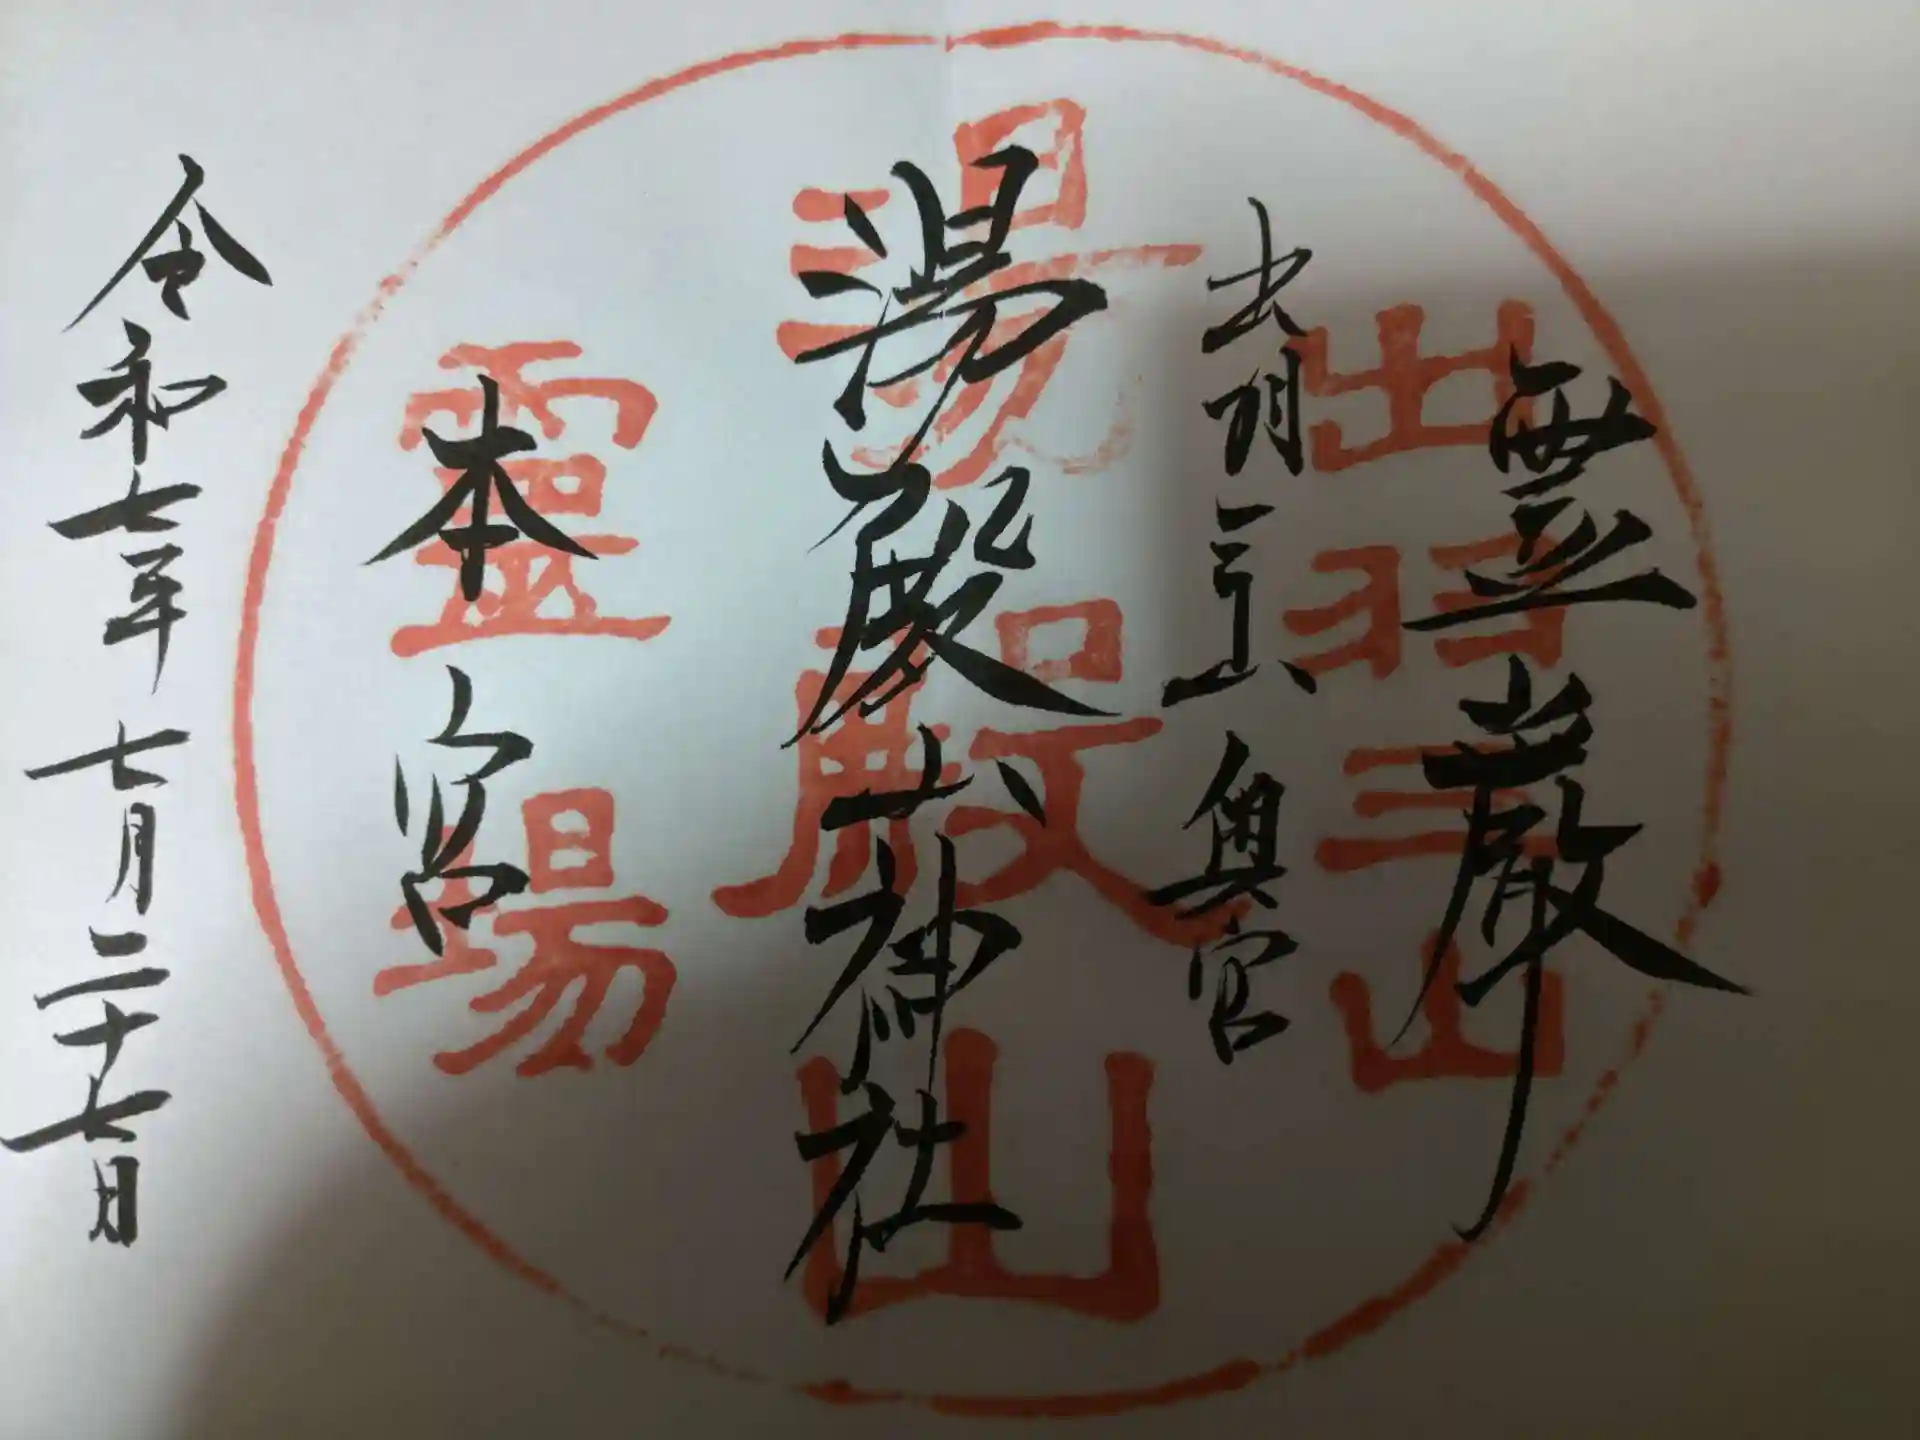 霊巌
出羽三山 奥宮
湯殿山神社
本宮
令和七年 七月二十七日
出羽三山
湯殿山
靈場